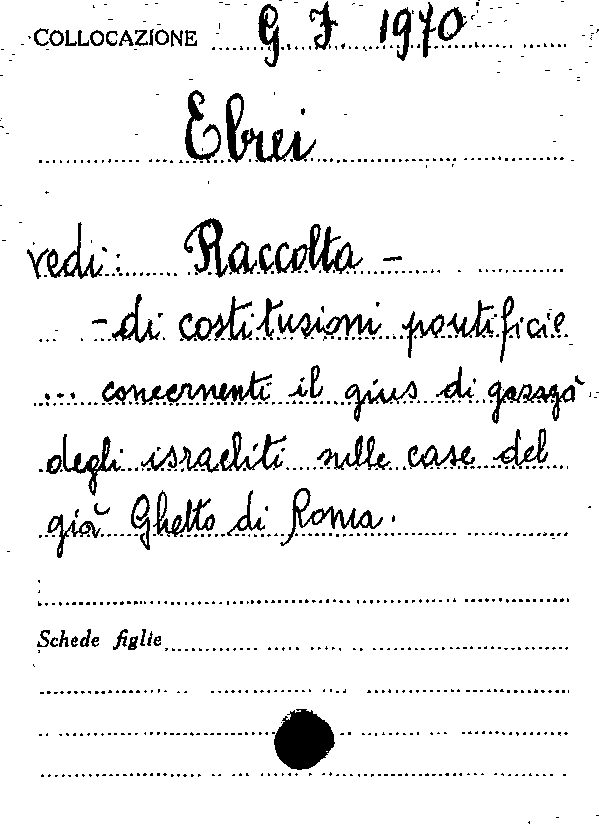 COLLOCAZIONE G. J. 1970
Ebrei
vedi: Raccolta -
- di costitusioni pontificie
... concernenti il gius di gasagà
degli israeliti nelle case del
già Ghetto di Roma.
Schede figlie